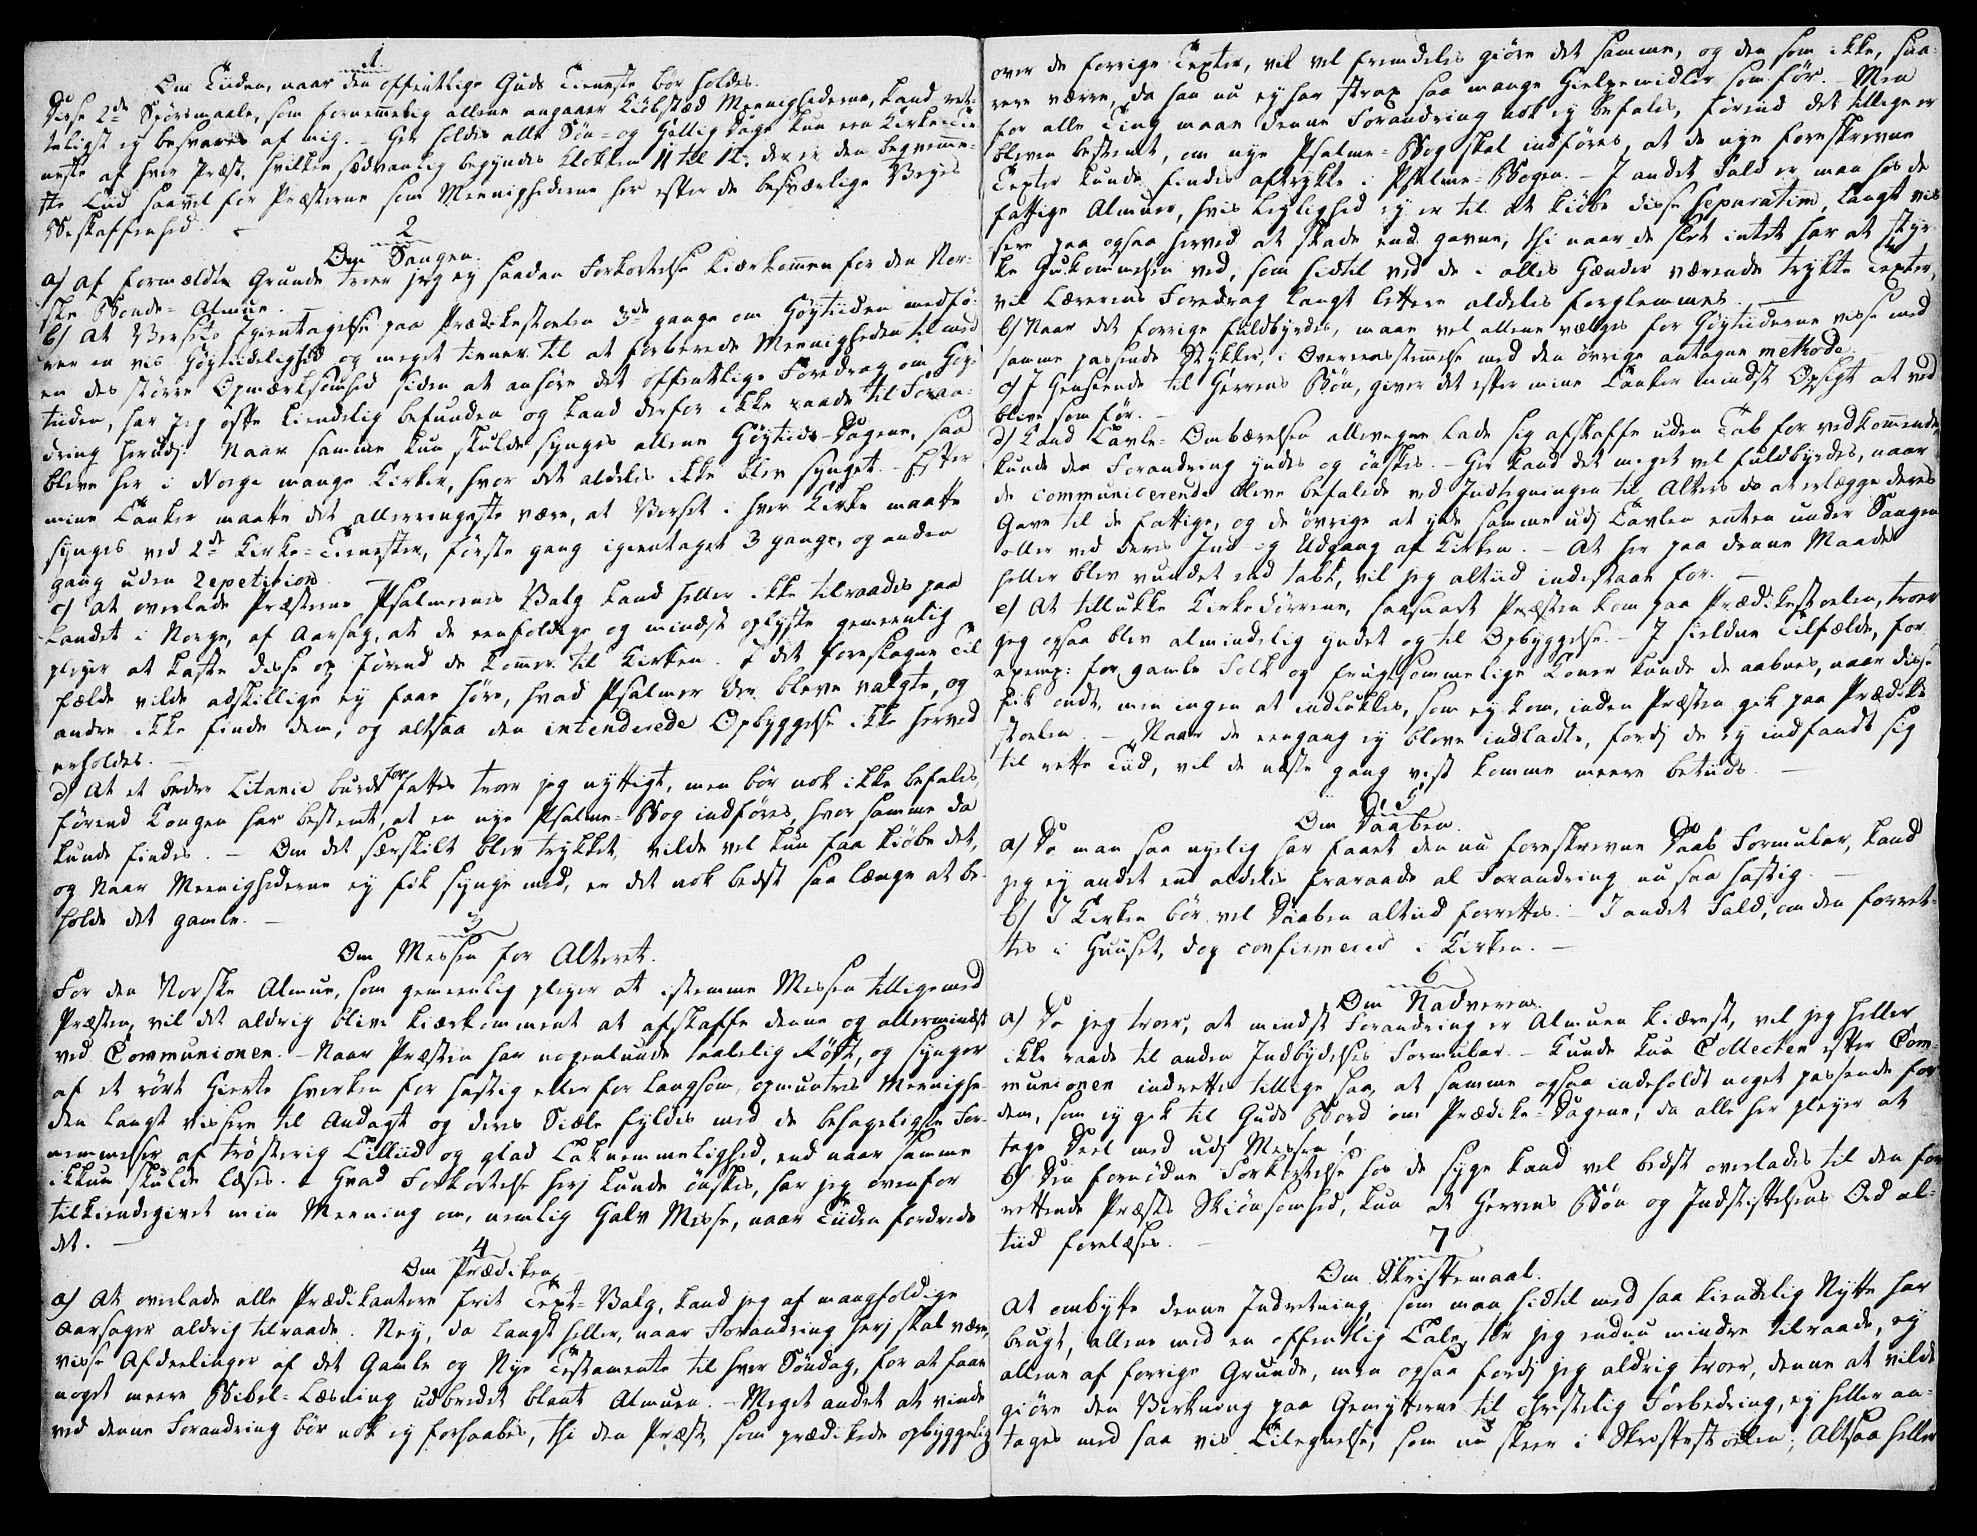 1
Om Tiiden, naar den offentlige Guds Tieneste bør holdes.
Disse 2de Spörsmaale, som fornemmelig allene angaaer Kiöbstæd Meenighederne, kand ret-
teligst ej besvares af mig. – Her holdes alle Søn- og Hellig Dage kun een Kirke Tie-
neste af hver Præst, hvilken sædvanlig begyndes Klokken 11 til 12, der er den beqvemme-
ste Tiid saavel for Præsterne som Meenighederne her efter de besværlige Veyes
Beskaffenhed. –
2
Om Sangen.
a) Af formældte Grunde troer jeg ey saadan Forkortelse kiærkommen for den Nor-
ske Bonde-Almue. –
b) At Versets Igientagelse paa Prædikestoelen 3de gange om Høytiiden medfø-
rer en vis Høytiidelighed og meget tiener til at forberede Meenigheden til med
en des större Opmærksomhed siden at anhöre det offentlige Foredrag om Høy-
tiiden, har jeg ofte kiendelig befunden og kand derfor ikke raade til Foran-
dring herudj. Naar samme kun skulde synges allene Høytiids-Dagene, saa
bleve her i Norge mange Kirker, hvor det aldeles ikke blev synget. – Efter
mine Tanker maatte det allerringeste være, at Verset i hver Kirke maatte
synges ved 2de Kirke-Tienester, förste gang igientaget 3 gange, og anden
gang uden Repetition.
c) At overlade Præsterne Psalmernes Valg kand heller ikke tilraades paa
Landet i Norge, af Aarsag, at de eenfoldige og mindst oplyste gemeenlig
pleyer at læse disse op förend de kommer til Kirken. I det foreslagne Til-
fælde vilde adskillige ey faae höre, hvad Psalmer der bleve valgte, og
andre ikke finde dem, og altsaa den intenderede Opbyggelse ikke herved
erholdes. –
d) At et bedre Litanie burde forfattes troer jeg nyttigt, men bör nok ikke befales,
förend Kongen har bestemt, at en nye Psalme-Bog indföres, hvor samme da
kunde findes. – Om det særskilt blev trykket, vilde vel kun faa kiöbe det,
og Naar Meenighederne ey fik synge med, er det nok bedst saa længe at be-
holde det gamle. –
3
Om Messen for Alteret.
For den Norske Almue, som gemeenlig pleyer at istemme Messen tilligemed
Præsten, vil det aldrig blive kiærkomment at afskaffe denne og allermindst
ved Communionen. – Naar Præsten har nogenlunde taalelig Röst, og synger
af et rört Hierte hverken for hastig eller for langsom, opmuntres Meenighe-
den langt vissere til Andagt og deres Siæle fyldes med de behageligste For-
nemmelser af trösterig Tilliid og glad Taknemmelighed, end naar samme
ikkun skulde læses. Hvad Forkortelse herj kunde önskes, har jeg ovenfor
tilkiendegivet min Meening om, nemlig Halv Messe, naar Tiiden fordrede
det. –
4
Om Prædiken.
a) At overlade alle Prædikantere frit Text-Valg, kand jeg af mangfoldige
Aarsager aldrig tilraade. Ney, da langt heller, naar Forandring herj skal være,
visse Afdeelinger af det Gamle og Nye Testamente til hver Söndag, for at faae
noget meere Bibel-Læsning udbredet blant Almuen. – Meget andet at vinde
ved denne Forandring bör nok ej forhaabes, thi den Præst, som prædikede opbyggelig
over de forrige Texter, vil vel fremdeles giöre det samme, og den som ikke, saa-
rere værre, da han nu ey har strax saa mange Hielpemidler som för. – Men
for alle Ting maae denne Forandring nok ej befales, förend det tillige er
bleven bestemt, om nye Psalme-Bog skal indföres, at de nye foreskrevne
Texter kunde findes aftrykte i Psalme-Bogen. – I andet Fald er man hos de
fattige Almuer, hvis Leylighed ej er til at kiöbe disse separatim, langt vis-
sere paa ogsaa herved at skade end gavne, thi naar de slet intet har at styr-
ke Hukommelsen ved, som hidtil ved de i alles Hænder værende trykte Texter,
vil Lærerens Foredrag langt lettere aldeles forglemmes. –
b) Naar det forrige fuldbyrdes, maae vel allene vælges for Høytiiderne visse med
samme passende Stykker, i Overeensstemmelse med den övrige antagne methode.
c) I Henseende til Herrens Bön, giver det efter mine Tanker mindst Opsigt at ved-
blive som för. –
d) Kand Tavle-Ombærelsen allevegne lade sig afskaffe uden Tab for vedkommende,
kunde den Forandring yndes og önskes. – Her kand det meget vel fuldbyrdes, naar
de communicerende bleve befalede ved Indtegningen til Alters at erlægge deres
Gave til de fattige, og de övrige at yde samme udj Tavlen enten under Sangen
eller ved deres Ind- og Udgang af Kirken. – At her paa denne Maade
heller blev vundet end tabt, vil jeg altiid indestaae for. –
e) At tillukke Kirkedörrene, saasnart Præsten kom paa Prædikestoelen, troer
jeg ogsaa blev almindelig yndet og til Opbyggelse. – I sieldne Tilfælde, for
exemp: for gamle Folk og frugtsommelige Koner kunde de aabnes, naar disse
fik ondt, men ingen at indlukkes, som ey kom, inden Præsten gik paa Prædike-
stoelen. – Naar de eengang ej bleve indladte, fordj de ej indfandt sig
til rette Tiid, vil de næste gang vist komme meere betiids. –
5
Om Daaben.
a) Da man saa nyelig har faaet den nu foreskrevne Daab Formular, kand
jeg ej andet end aldeles fraraade al Forandring nu saa hastig. –
b) I Kirken bör vel Daaben altiid forrettes. – I andet Fald, om den forret-
tes i Huuset, dog confirmeres i Kirken. –
6
Om Nadveren.
a) Da jeg troer, at mindst Forandring er Almuen kiærest, vil jeg heller
ikke raade til anden Indbydelses Formular. – Kunde kun Collecten efter Com-
munionen indrettes tillige saa, at samme ogsaa indeholdt noget passende for
dem, som ej gik til Guds Bord om Prædike-Dagene, da alle her pleyer at
tage Deel med udj Messen!
b) Den fornödne Forkortelse hos de syge kand vel bedst overlades til den for-
rettende Præsts Skiönsomhed, kun at Herrens Bön og Indstiftelsens Ord al-
tiid forelæses. –
7
Om Skriftemaal.
At ombytte denne Indretning, som man hidtil med saa kiendelig Nytte har
brugt, allene med en offentlig Tale, tör jeg endnu mindre tilraade, ey
allene af forrige Grunde, men ogsaa fordj jeg aldrig troer, denne at vilde
giöre den Virkning paa Gemytterne til christelig Forbedring, ej heller an-
tages med saa vis Tilegnelse, som nu skeer i Skriftestoelen; Altsaa heller